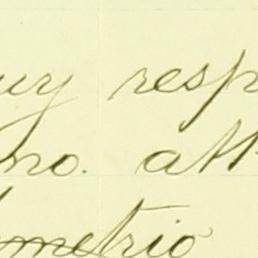 muy resp
mo. att
metrio